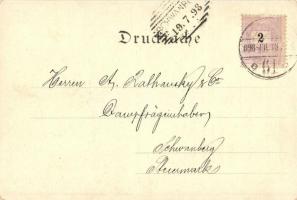 19.7.98
Drucksache
2
61
Herren A. Kathansky & Co
Dampfsägeinhaber
Schwanberg
Steiermark